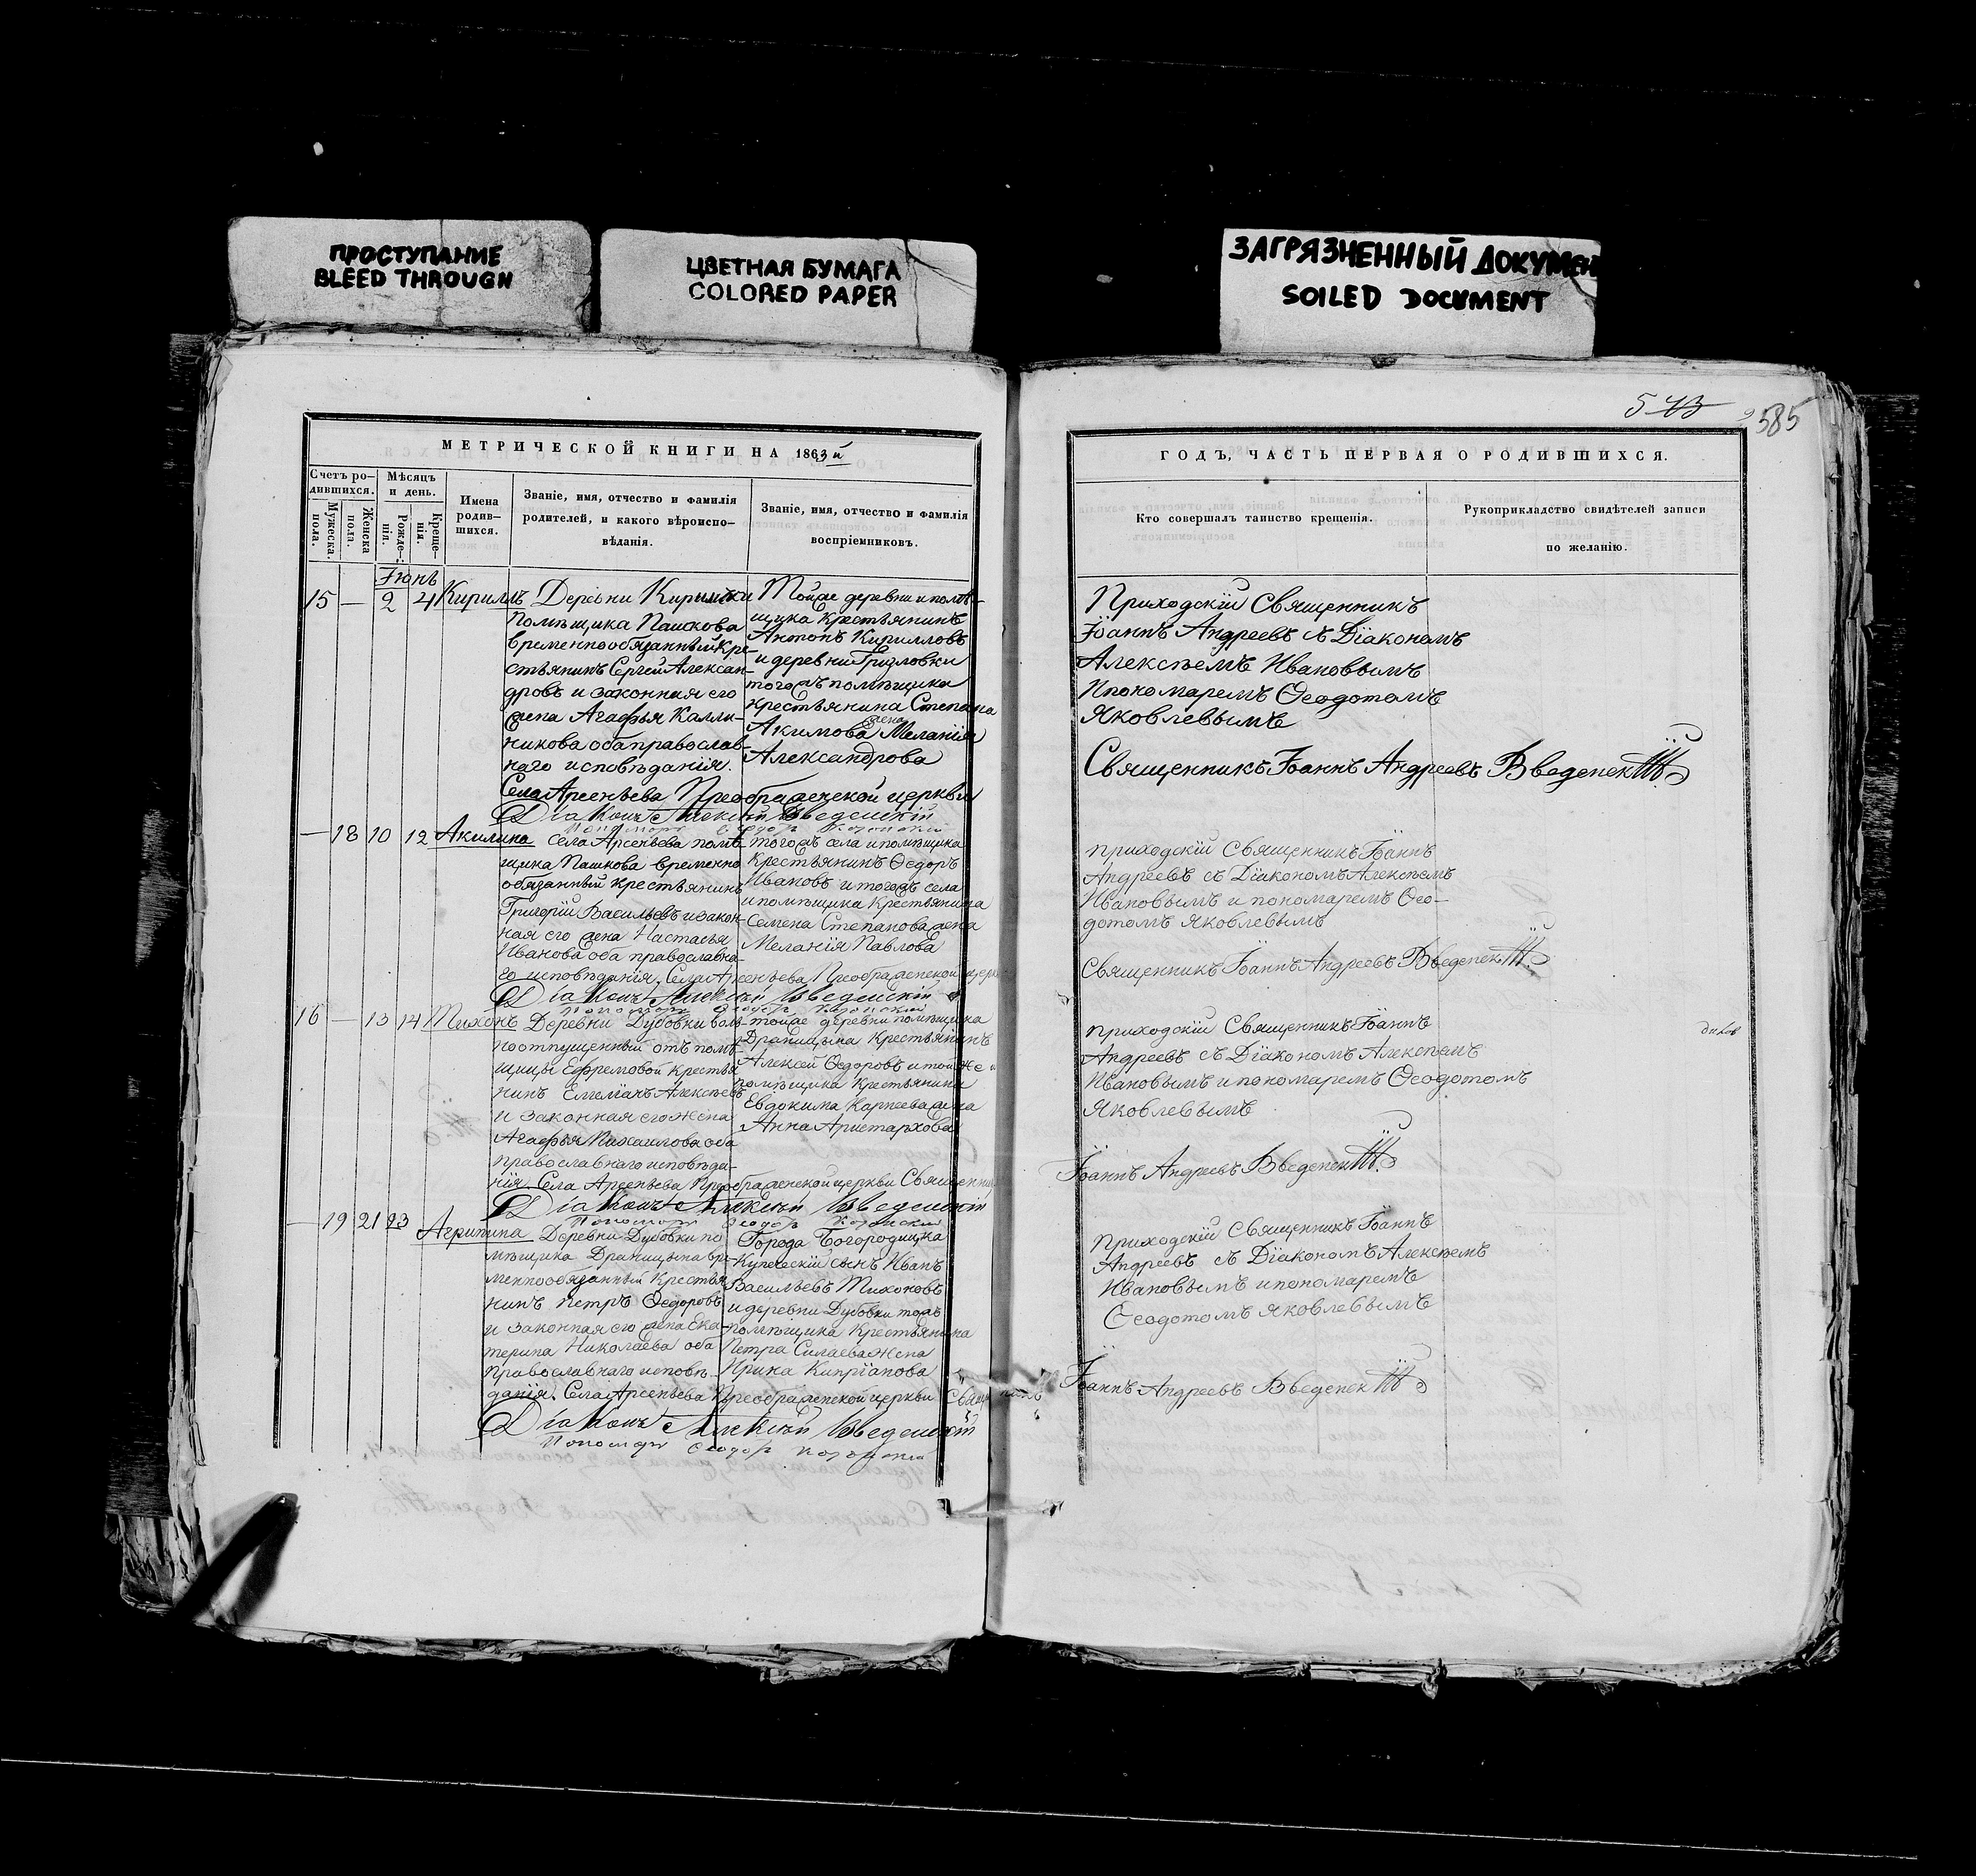 ПРОСТУПАНИЕ
BLEED THROUGH
ЦВЕТНАЯ БУМАГА
COLORED PAPER
ЗАГРЯЗНЕННЫЙ ДОКУМЕН
SOILED DOCUMENT
543
585
МЕТРИЧЕСКОЙ КНИГИ НА 1863й
Счетъ ро-
дившихся.
Мужеска. пола.
Женска пола.
Мѣсяцъ
и день.
Рожде-нія.
Креще-нія.
Имена
родив-
шихся.
Званіе, имя, отчество и фамилія
родителей, и какого вѣроиспо-
вѣданія.
Званіе, имя, отчество и фамилія
воспріемниковъ.
Іюнь
15 — 2 4 Кириллъ
Деревни
Помѣщика Пашкова
временнообязанный кре-
стьянинъ Сергей Алексан-
дровъ и законная его
жена Агафья Калли-
никова оба православ-
наго исповѣданія.
Тойже деревни и помѣ-
щика крестьянинъ
Антонъ Кирилловъ
и деревни Гризловки
тогожъ помѣщика
крестьянина Степана
Акимова жена Меланія
Александрова
Села Арсеньева Преображенской церкви
Діаконъ Алексѣй Введенскій
— 18 10 12 Акилина
Села Арсеньева помѣ-
щика Пашкова временно
обязанный крестьянинъ
Григорій Васильевъ и закон-
ная его жена Настасья
Иванова оба православна-
го исповѣданія. Села Арсеньева Преображенской церк
тогожъ села и помѣщика
Крестьянинъ Ѳедоръ
Ивановъ и тогожъ села
и помѣщика Крестьянина
Семена Степанова жена
Меланія Павлова
Діаконъ Алексѣй Введенскій
16 — 13 14 Тихонъ
Деревни Дубовки воль-
ноотпущенный отъ помѣ-
щицы Ефремовой Крестья
нинъ Алексѣевъ
и законная его жена
Агафья Михаилова оба
православнаго исповѣда-
нія. Села Арсеньева Преображенской церкви Священни
тойже деревни помѣщика
Драницына Крестьянинъ
Алексей Ѳедоровъ и той же
помѣщика Крестьянина
Евдокима Карпеева жена
Анна Аристархова
Діаконъ Алексѣй Введенскій
— 19 21 23 Агрипина
Деревни Дубовки по
мѣщика Драницына вре-
меннообязанный Крестья
нинъ Петръ Ѳедоровъ
и законная его жена Ека-
терина Николаева оба
Православнаго исповѣ-
данія. Села Арсеньева Преображенской церкви
Города Богородицка
Купеческій сынъ Иванъ
Васильевъ Тихоновъ
и деревни Дубовки тогожъ
помѣщика Крестьянина
Петра Силаева жена
Ирина Кипріанова
Діаконъ Алексѣй Введенскій
ГОДЪ, ЧАСТЬ ПЕРВАЯ О РОДИВШИХСЯ.
Кто совершалъ таинство крещенія.
Рукоприкладство свидѣтелей записи
по желанію.
Приходскій Священникъ
Іоаннъ Андреевъ съ Діакономъ
Алексѣемъ Ивановымъ
Ипономаремъ Ѳеодотомъ
Яковлевымъ
Священникъ Іоаннъ Андреевъ Введенскій
приходскій Священникъ Іоаннъ
Андреевъ съ Діакономъ Алексѣемъ
Ивановымъ и пономаремъ Ѳео-
дотомъ Яковлевымъ
Священникъ Іоаннъ Андреевъ Введенскій
приходскій Священникъ Іоаннъ
Андреевъ съ Діакономъ Алексѣемъ
Ивановымъ и пономаремъ Ѳеодотомъ
Яковлевымъ
Іоаннъ Андреевъ Введенскій
приходскій Священникъ Іоаннъ
Андреевъ съ Діакономъ Алексѣемъ
Ивановымъ и пономаремъ
Ѳеодотомъ Яковлевымъ
Іоаннъ Андреевъ Введенскій